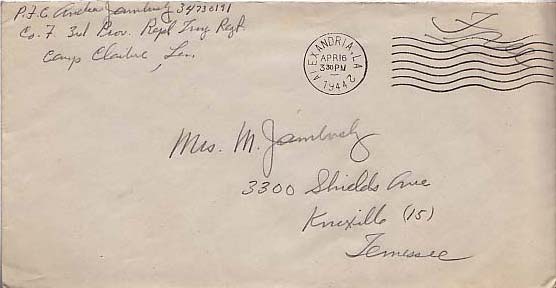 P.F.C. 34730191
Co. F. 3rd Prov. Repl Trng Regt.
Camp Claiborne, Lou.
ALEXANDRIA, LA.
APR 16
3 30 PM
1944
2
Free
Mrs. M.
3300 Shields Ave
Knoxville (15)
Tennessee